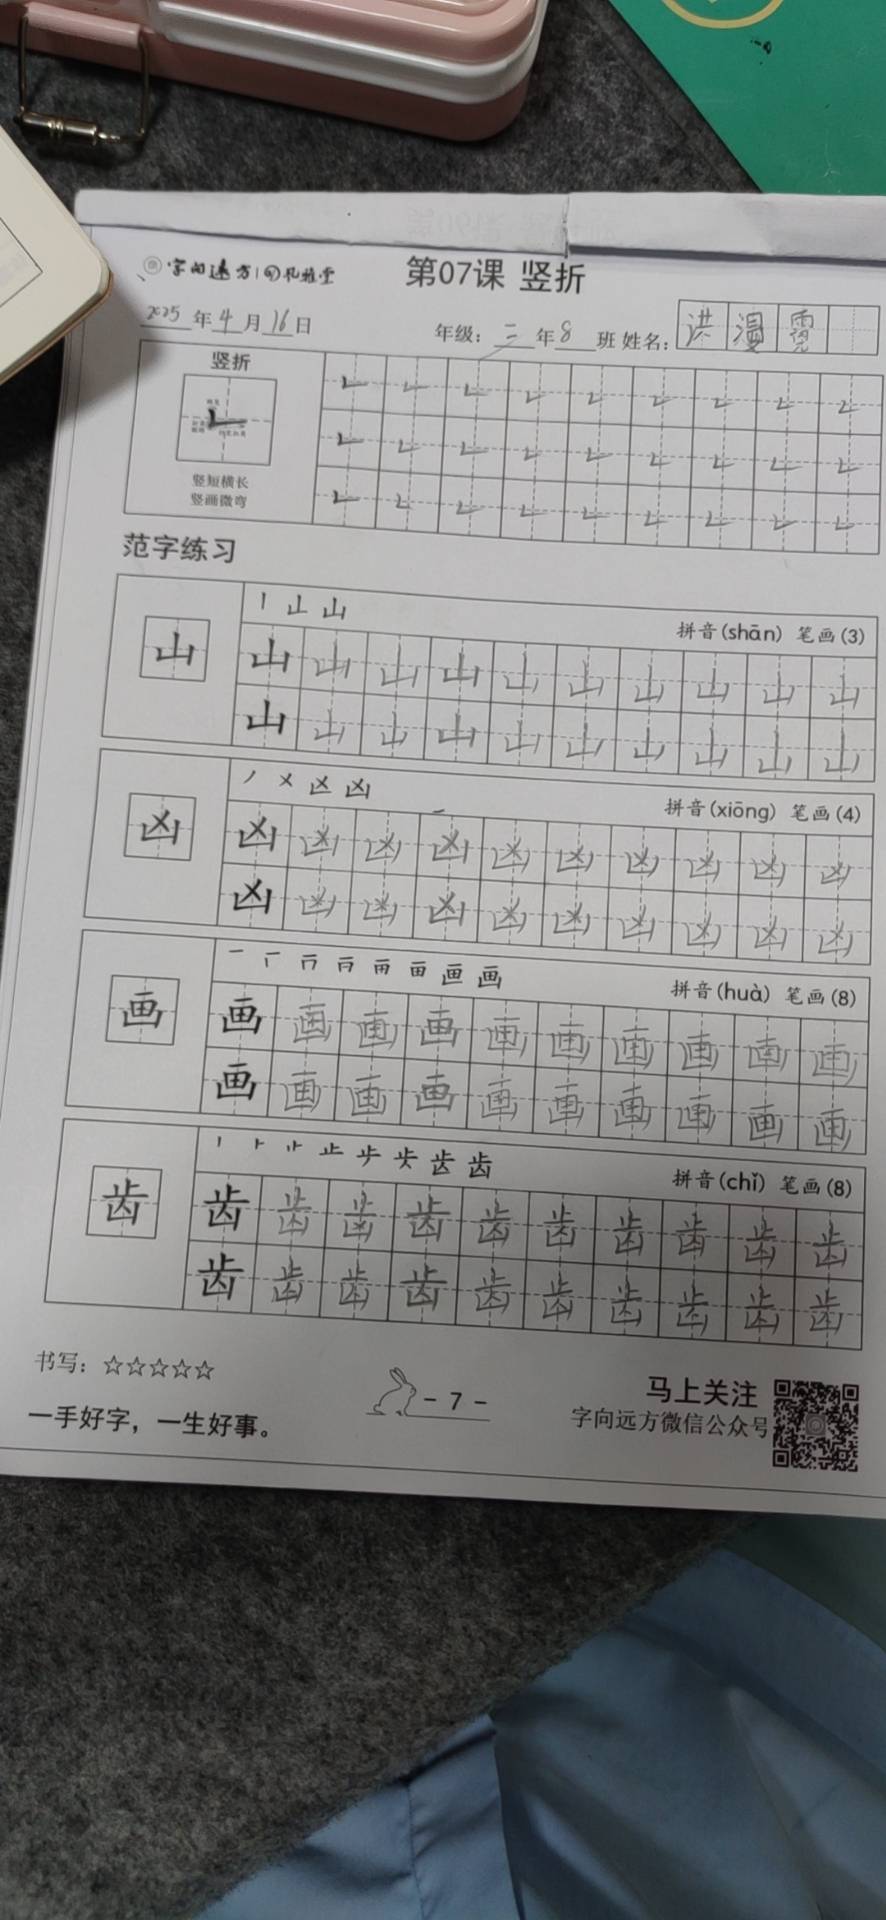 字向远方
第07课 竖折
2025年4月16日 年级：三年8班 姓名：洪漫霓
竖折
竖短横长
竖画微弯
范字练习
丨 山 山
拼音(shān) 笔画(3)
山 山 山 山 山 山 山 山 山 山 山
山 山 山 山 山 山 山 山 山 山
拼音(xiōng) 笔画(4)
凶 凶 凶 凶 凶 凶 凶 凶 凶 凶 凶
凶 凶 凶 凶 凶 凶 凶 凶 凶 凶
拼音(huà) 笔画(8)
画 画 画 画 画 画 画 画 画 画 画
画 画 画 画 画 画 画 画 画 画
拼音(chǐ) 笔画(8)
齿 齿 齿 齿 齿 齿 齿 齿 齿 齿 齿
齿 齿 齿 齿 齿 齿 齿 齿 齿 齿
书写：☆☆☆☆☆
一手好字，一生好事。
- 7 -
马上关注
字向远方微信公众号